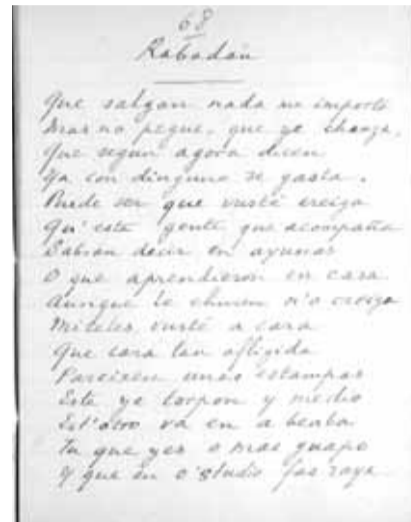 68
Rabadán
Que salgan nada me importa
Mas no pegue, que ye chanza,
Que segun agora dicen
Ya con dinguno se gasta.
Puede ser que vusté creiga
Qu'esta gente que acompaña
Sabian decir en ayunas
O que aprendieron en casa
Aunque le churen creiga
Miteles vusté a cara
Que cara tan afligida
Pareixen unas estampas
Este ye torpon y medio
Est'atro va en a beaba
Tu que yes o mas guapo
Y que en o'studio fas raya